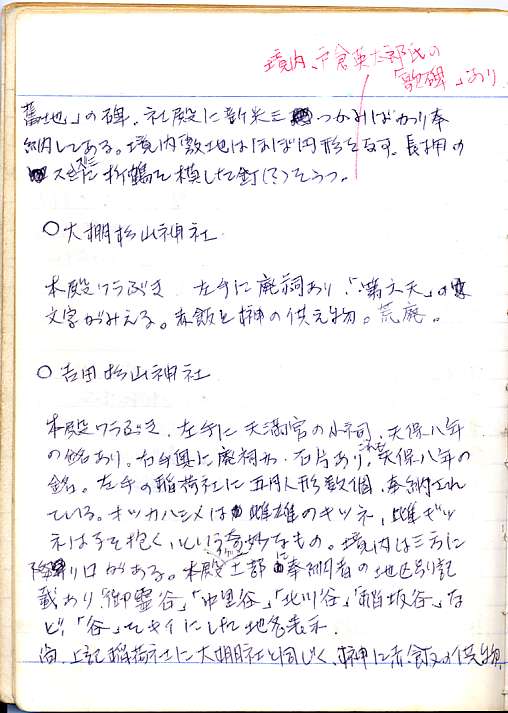 境内、戸倉英太郎氏の
「歌碑」あり
舊地」の碑、社殿に新米三つかみばかり奉
納してある。境内敷地はほぼ円形を為す。長押の
スミに折鶴を模した釘(?)をうつ。
○大棚杉山神社
本殿ワラぶき 左手に廃祠あり「第六天」の
文字がみえる。赤飯と榊の供え物。荒廃。
○吉田杉山神社
本殿ワラぶき、左手に天満宮の小祠、天保八年
の銘あり。右手奥に廃祠か、石片あり、これも天保八年の
銘。左手の稲荷社に五月人形数個、奉納され
ている。オツカハシメは雌雄のキツネ、雌ギツ
ネは子を抱く、という奇妙なもの。境内は三方に
降り口がある。本殿上部に奉納者の地区別記
載あり「御霊谷」「中里谷」「北川谷」「稲坂谷」な
ど、「谷」をキイにした地名表示。
尚、上記稲荷社に大棚社と同じく、榊に赤飯の供物。